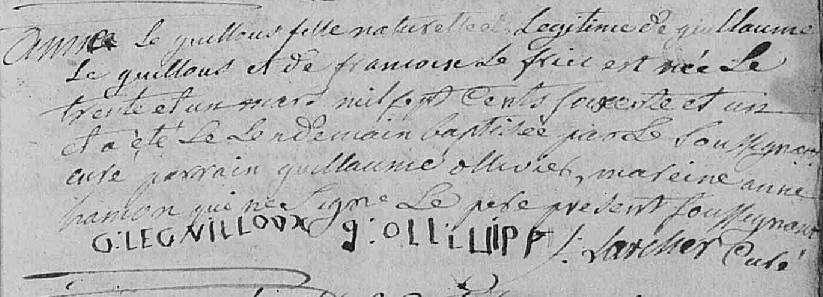 Anne Le guillous fille naturelle et Legitime de guillaume
Le guillous et de francoise Le fric est née Le
trente et un mars mil sept Cents soixente et un
et a été Le Lendemain baptisée par Le Soussignant
curé parrain guillaume ollivier, mareine anne
hamon qui ne Signe Le pere present Soussignant
G: LEGVILLOUX g: OLLI J: Larcher Curé